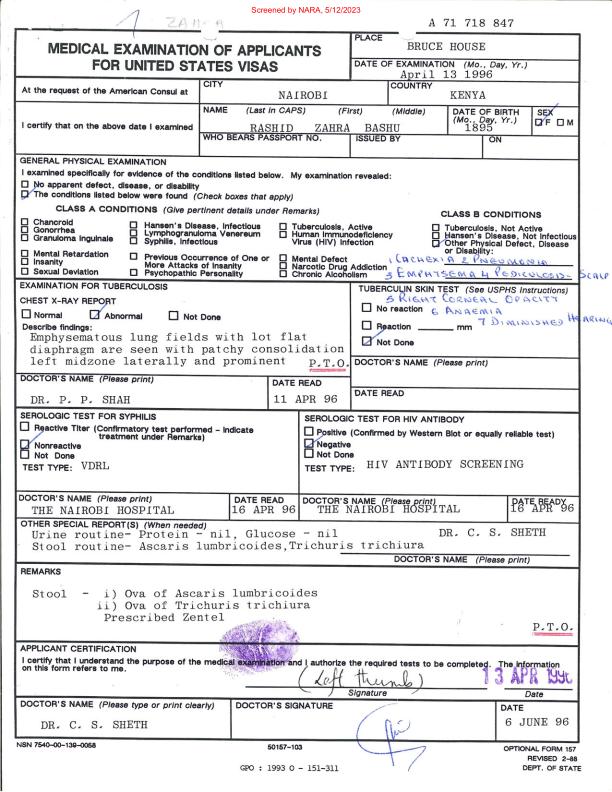 Screened by NARA, 5/12/2023
A 71 718 847
MEDICAL EXAMINATION OF APPLICANTS
FOR UNITED STATES VISAS
PLACE
BRUCE HOUSE
DATE OF EXAMINATION (Mo., Day, Yr.)
April 13 1996
At the request of the American Consul at
CITY
NAIROBI
COUNTRY
KENYA
I certify that on the above date I examined
NAME (Last in CAPS) (First) (Middle)
RASHID ZAHRA BASHU
DATE OF BIRTH
(Mo., Day, Yr.)
1895
SEX
F M
WHO BEARS PASSPORT NO.
ISSUED BY
ON
GENERAL PHYSICAL EXAMINATION
I examined specifically for evidence of the conditions listed below. My examination revealed:
No apparent defect, disease, or disability
The conditions listed below were found (Check boxes that apply)
CLASS A CONDITIONS (Give pertinent details under Remarks)
Chancroid
Gonorrhea
Granuloma Inguinale
Hansen's Disease, Infectious
Lymphogranuloma Venereum
Syphilis, Infectious
Tuberculosis, Active
Human Immunodeficiency
Virus (HIV) Infection
Mental Retardation
Insanity
Sexual Deviation
Previous Occurrence of One or
More Attacks of Insanity
Psychopathic Personality
Mental Defect
Narcotic Drug Addiction
Chronic Alcoholism
CLASS B CONDITIONS
Tuberculosis, Not Active
Hansen's Disease, Not Infectious
Other Physical Defect, Disease
or Disability:
1 CACHEXIA 2 PNEUMONIA
3 EMPHYSEMA 4 PEDICULOSIS- SCALP
5 RIGHT CORNEAL OPACITY
6 ANAEMIA
7 DIMINISHED HEARING
EXAMINATION FOR TUBERCULOSIS
CHEST X-RAY REPORT
Normal Abnormal Not Done
Describe findings:
Emphysematous lung fields with lot flat
diaphragm are seen with patchy consolidation
left midzone laterally and prominent P.T.O.
DOCTOR'S NAME (Please print)
DR. P. P. SHAH
DATE READ
11 APR 96
TUBERCULIN SKIN TEST (See USPHS Instructions)
No reaction
Reaction mm
Not Done
DOCTOR'S NAME (Please print)
DATE READ
SEROLOGIC TEST FOR SYPHILIS
Reactive Titer (Confirmatory test performed - indicate
treatment under Remarks)
Nonreactive
Not Done
TEST TYPE: VDRL
SEROLOGIC TEST FOR HIV ANTIBODY
Positive (Confirmed by Western Blot or equally reliable test)
Negative
Not Done
TEST TYPE: HIV ANTIBODY SCREENING
DOCTOR'S NAME (Please print)
THE NAIROBI HOSPITAL
DATE READ
16 APR 96
DOCTOR'S NAME (Please print)
THE NAIROBI HOSPITAL
DATE READY
16 APR 96
OTHER SPECIAL REPORT(S) (When needed)
Urine routine- Protein - nil, Glucose - nil
DR. C. S. SHETH
Stool routine- Ascaris lumbricoides,Trichuris trichiura
DOCTOR'S NAME (Please print)
REMARKS
Stool - i) Ova of Ascaris lumbricoides
ii) Ova of Trichuris trichiura
Prescribed Zentel
P.T.O.
APPLICANT CERTIFICATION
I certify that I understand the purpose of the medical examination and I authorize the required tests to be completed. The information
on this form refers to me.
(Left thumb)
13 APR 1996
Signature
Date
DOCTOR'S NAME (Please type or print clearly)
DR. C. S. SHETH
DOCTOR'S SIGNATURE
DATE
6 JUNE 96
NSN 7540-00-139-0058
50157-103
OPTIONAL FORM 157
REVISED 2-88
DEPT. OF STATE
GPO : 1993 O - 151-311